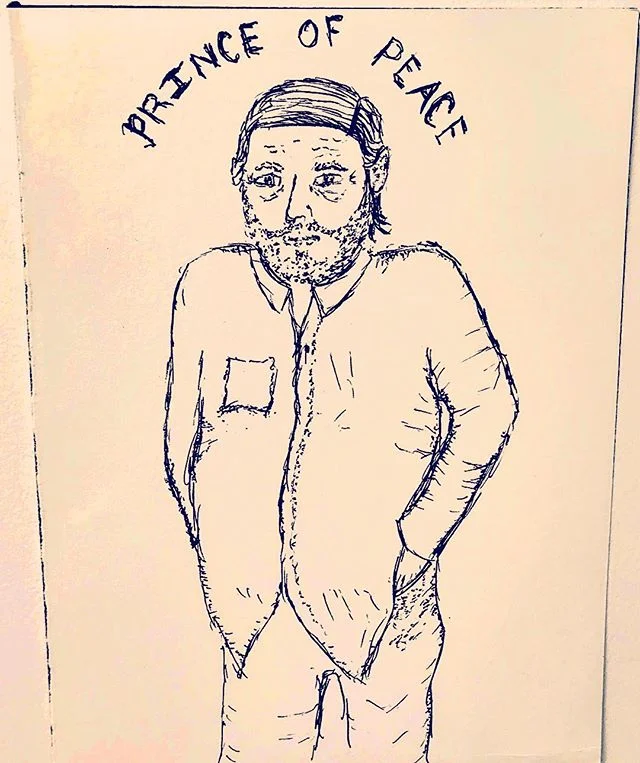 PRINCE OF PEACE